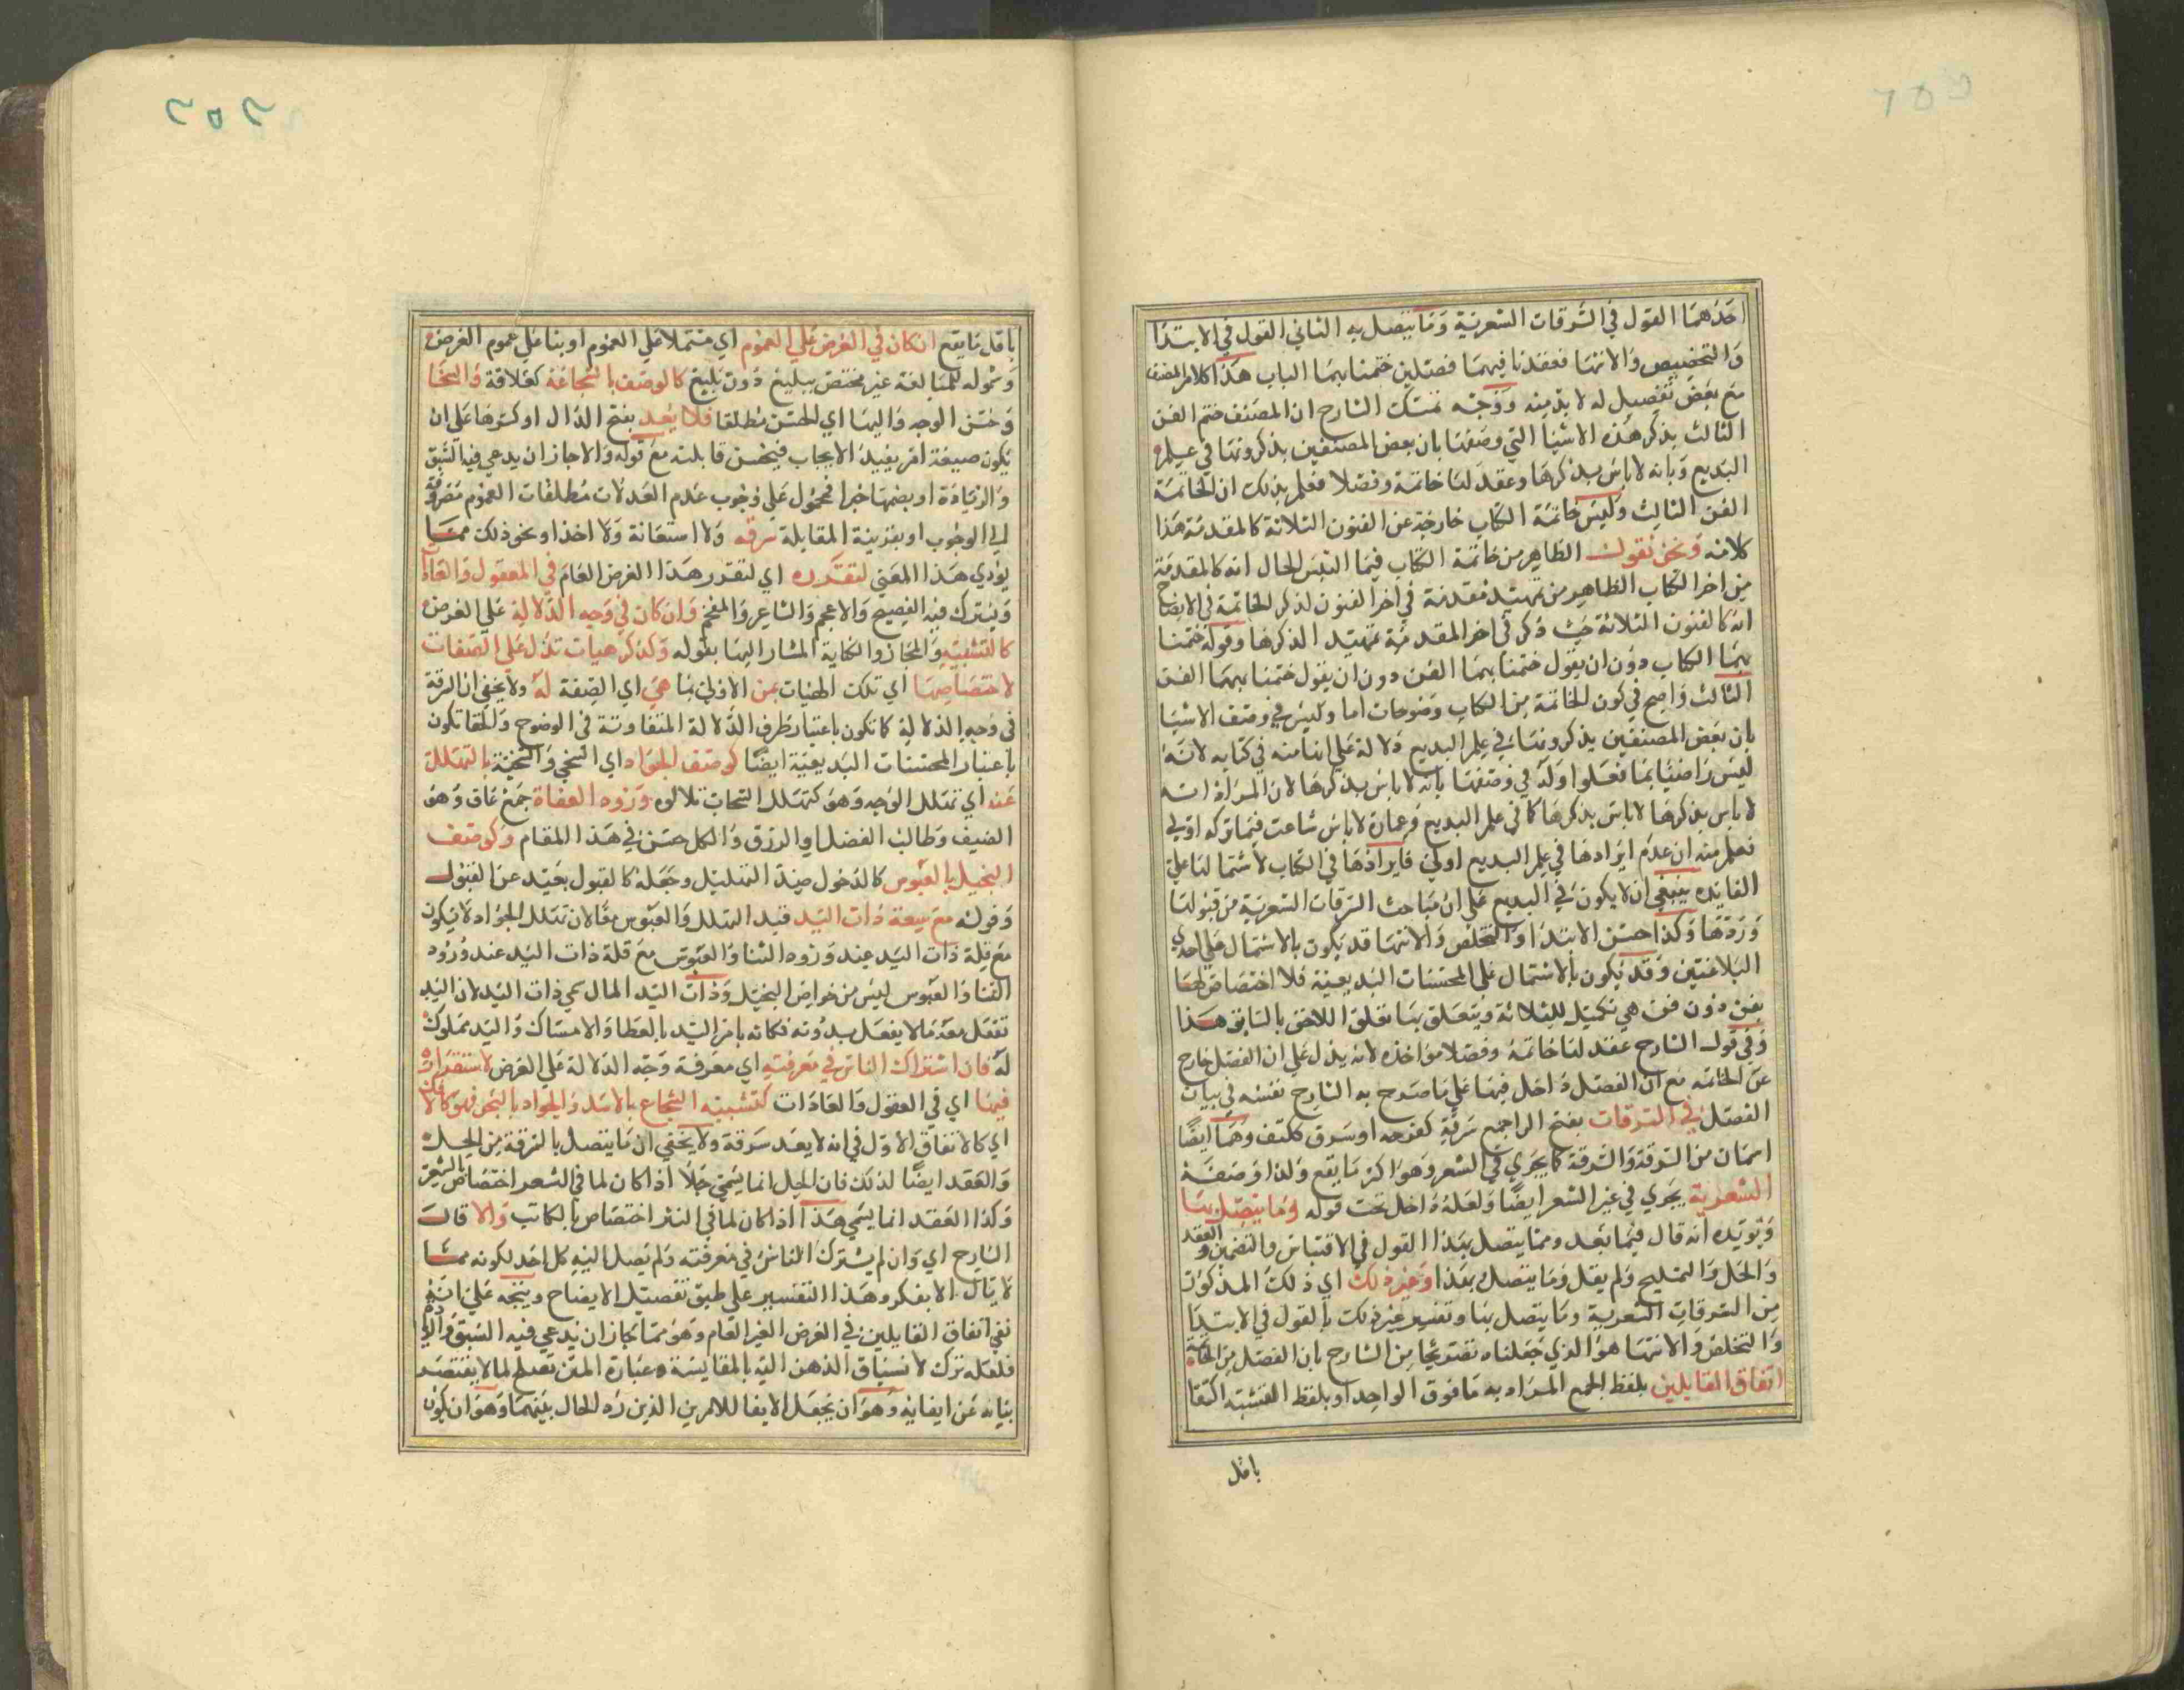 احدهما القول في السرقات الشعرية وما يتصل به الثاني القول في الابتدا
والتخصيص والانتها فعقدنا فيهما فصلين ختمنا بهما الباب هذا كلام المصنف
مع بعض تفصيل له لا بد منه ووجه تمسك الشارح ان المصنف ختم الفن
الثالث بذكر هذه الاشيا التي وصفها بان بعض المصنفين يذكرونها في علم
البديع وبانه لا باس بذكرها وعقد لها خاتمة وفصلا فعلم بذلك ان الخاتمة
الفن الثالث وليس خاتمة الكتاب خارجة عن الفنون الثلاثة كالمقدمة هذا
كلامه ونحن نقول الظاهر من خاتمة الكتاب فيما التبس الحال انه كالمقدمة
من اخر الكتاب الظاهر من تمهيد مقدمة في اخر الفنون لذكر الخاتمة في الايضاح
انه كالفنون الثلاثة حيث ذكر في اخر المقدمة تمهيد الذكرها وقوله ختمنا
بهما الكتاب دون ان يقول ختمنا بهما الفن دون ان يقول ختمنا بهما الفن
الثالث واضح في كون الخاتمة من الكتاب وضوحات اما وليس في وصف الاشيا
بان بعض المصنفين يذكرونها في علم البديع دلالة على انها منه في كتابه لانه
ليس راضيا بما فعلوا ولا في وصفها بانه لا باس بذكرها لان المراد انه
لا باس بذكرها لا باس بذكرها كما في علم البديع وعبارة لا باس شاعت فيما تركه اولى
فعلم منه ان عدم ايرادها في علم البديع اولى فايرادها في الكتاب لاشتمالها على
الفايده ينبغي ان لا يكون في البديع على ان مباحث السرقات الشعرية من قبولها
وردها وكذا حسن الابتدا والتخلص والانتها قد يكون بالاشتمال على احدى
البلاغتين وقد يكون بالاشتمال على المحسنات البديعية فلا اختصاص لها
بفن دون فن هي تكميل للثلاثة ويتعلق بها تعلق اللاحق بالسابق هذا
وفي قول الشارح عقد لها خاتمة وفصلا مواخذه لانه يدل على ان الفصل خارج
عن الخاتمه مع ان الفصل داخل فيها على ما صرح به الشارح نفسه في بيان
الفصل في السرقات بفتح الراجمع سرقة كفرحه او سرق ككتف وهما ايضا
اسمان من السرقة والسرقة كما يجري في الشعر وهو اكثر ما يقع ولذا وصفه
الشعرية يجري في غير الشعر ايضا ولعله داخل تحت قوله وما يتصل بها
ويويده انه قال فيما بعد ومما يتصل بهذا القول في الاقتباس والتضمين والعقد
والحل والتمليح ولم يقل وما يتصل بهذا وغير ذلك اي ذلك المذكور
من السرقات الشعرية وما يتصل بها وتفسير غير ذلك بالقول في الابتدا
والتخلص والانتها هو الذي جعلناه تصريحا من الشارح بان الفصل من الخاتمة
اتفاق القايلين بلفظ الجمع المراد به ما فوق الواحد او بلفظ التثنية اكتفا
باقل
باقل ما يقع ان كان في الغرض على العموم اي مشتملا على العموم او بنا على عموم الغرض
وشموله للمبالغة غير مختص ببليغ دون بليغ كالوصف بالشجاعة كعلاقة والسخا
وحسن الوجه والبها اي الحسن مطلقا فلا يعد بفتح الدال او كسرها على ان
يكون صيغة امر يفيد الايجاب فيحسن قابلته مع قوله والا جاز ان يدعي فيه السبق
والزيادة او بضمها خبرا فمحمول على وجوب عدم العد لان مطلقات العموم مصروفة
الى الوجوب او بقرينة المقابلة سرقه ولا استعانة ولا اخذا ونحو ذلك مما
يودي هذا المعنى لتقرره اي لتقرر هذا الغرض العام في المعقول والعادا
ويشترك فيه الفصيح والاعجم والشاعر والمفحم وان كان في وجه الدلالة على الغرض
كالتشبيه والمجاز والكناية المشار اليها بقوله وكذكر هيات تدل على الصفات
لاختصاصها اي تلك الهيات بمن الاولى بما هي اي الصفة له ولا يخفى ان السرقة
في وجه الدلالة كما تكون باعتبار طرف الدلالة المتفاوتة في الوضوح والخفا تكون
باعتبار المحسنات البديعية ايضا كوصف الجواد اي السخي والسخية بالتهلل
عند اي تهلل الوجه وهو كتهلل السحاب تلالوه ورود العفاة جمع عاف وهو
الضيف وطالب الفضل او الرزق والكل حسن في هذا المقام وكوصف
البخيل بالعبوس كالدخول صيد التهليل وجعله كالقبول بعيد عن القبول
وقوله مع سعة ذات اليد قيد التهلل والعبوس معا لان تهلل الجواد لا يكون
مع قلة ذات اليد عند ورود الثنا والعبوس مع قلة ذات اليد عند ورود
الثنا والعبوس ليس من خواص البخيل وذات اليد المال سمي ذات اليد لان اليد
تفعل معه ما لا يفعل بدونه فكانه يامر اليد بالعطا والامساك واليد مملوك
له فان اشتراك الناس في معرفته اي معرفة وجه الدلالة على الغرض لاستقراره
فيها اي في العقول والعادات كتشبيه الشجاع بالاسد والجواد بالبحر فهو كالاول
اي كالاتفاق الاول في انه لا يعد سرقة ولا يخفى ان ما يتصل بالسرقة من الحل
والعقد ايضا لذلك فان الحل انما يسمى حلا اذا كان لما في الشعر اختصاص بالشعر
وكذا العقد انما يسمى هذا اذا كان لما في النثر اختصاص بالكاتب والا قال
الشارح اي وان لم يشترك الناس في معرفته ولم يصل اليه كل احد لكونه مما
لا ينال الا بفكر وهذا التفسير على طبق تفصيل الايضاح ويتجه على انه
نفي اتفاق القايلين في الغرض الغير العام وهو مما جاز ان يدعي فيه السبق
فلعله ترك لانسياق الذهن اليه بالمقايسة وعبارة المتن تصلح لما لا يقتصد
بيانه عن ايفايه وهو ان يجعل الايفا للامرين الذين رد الحال بينهما وهو ان يكون